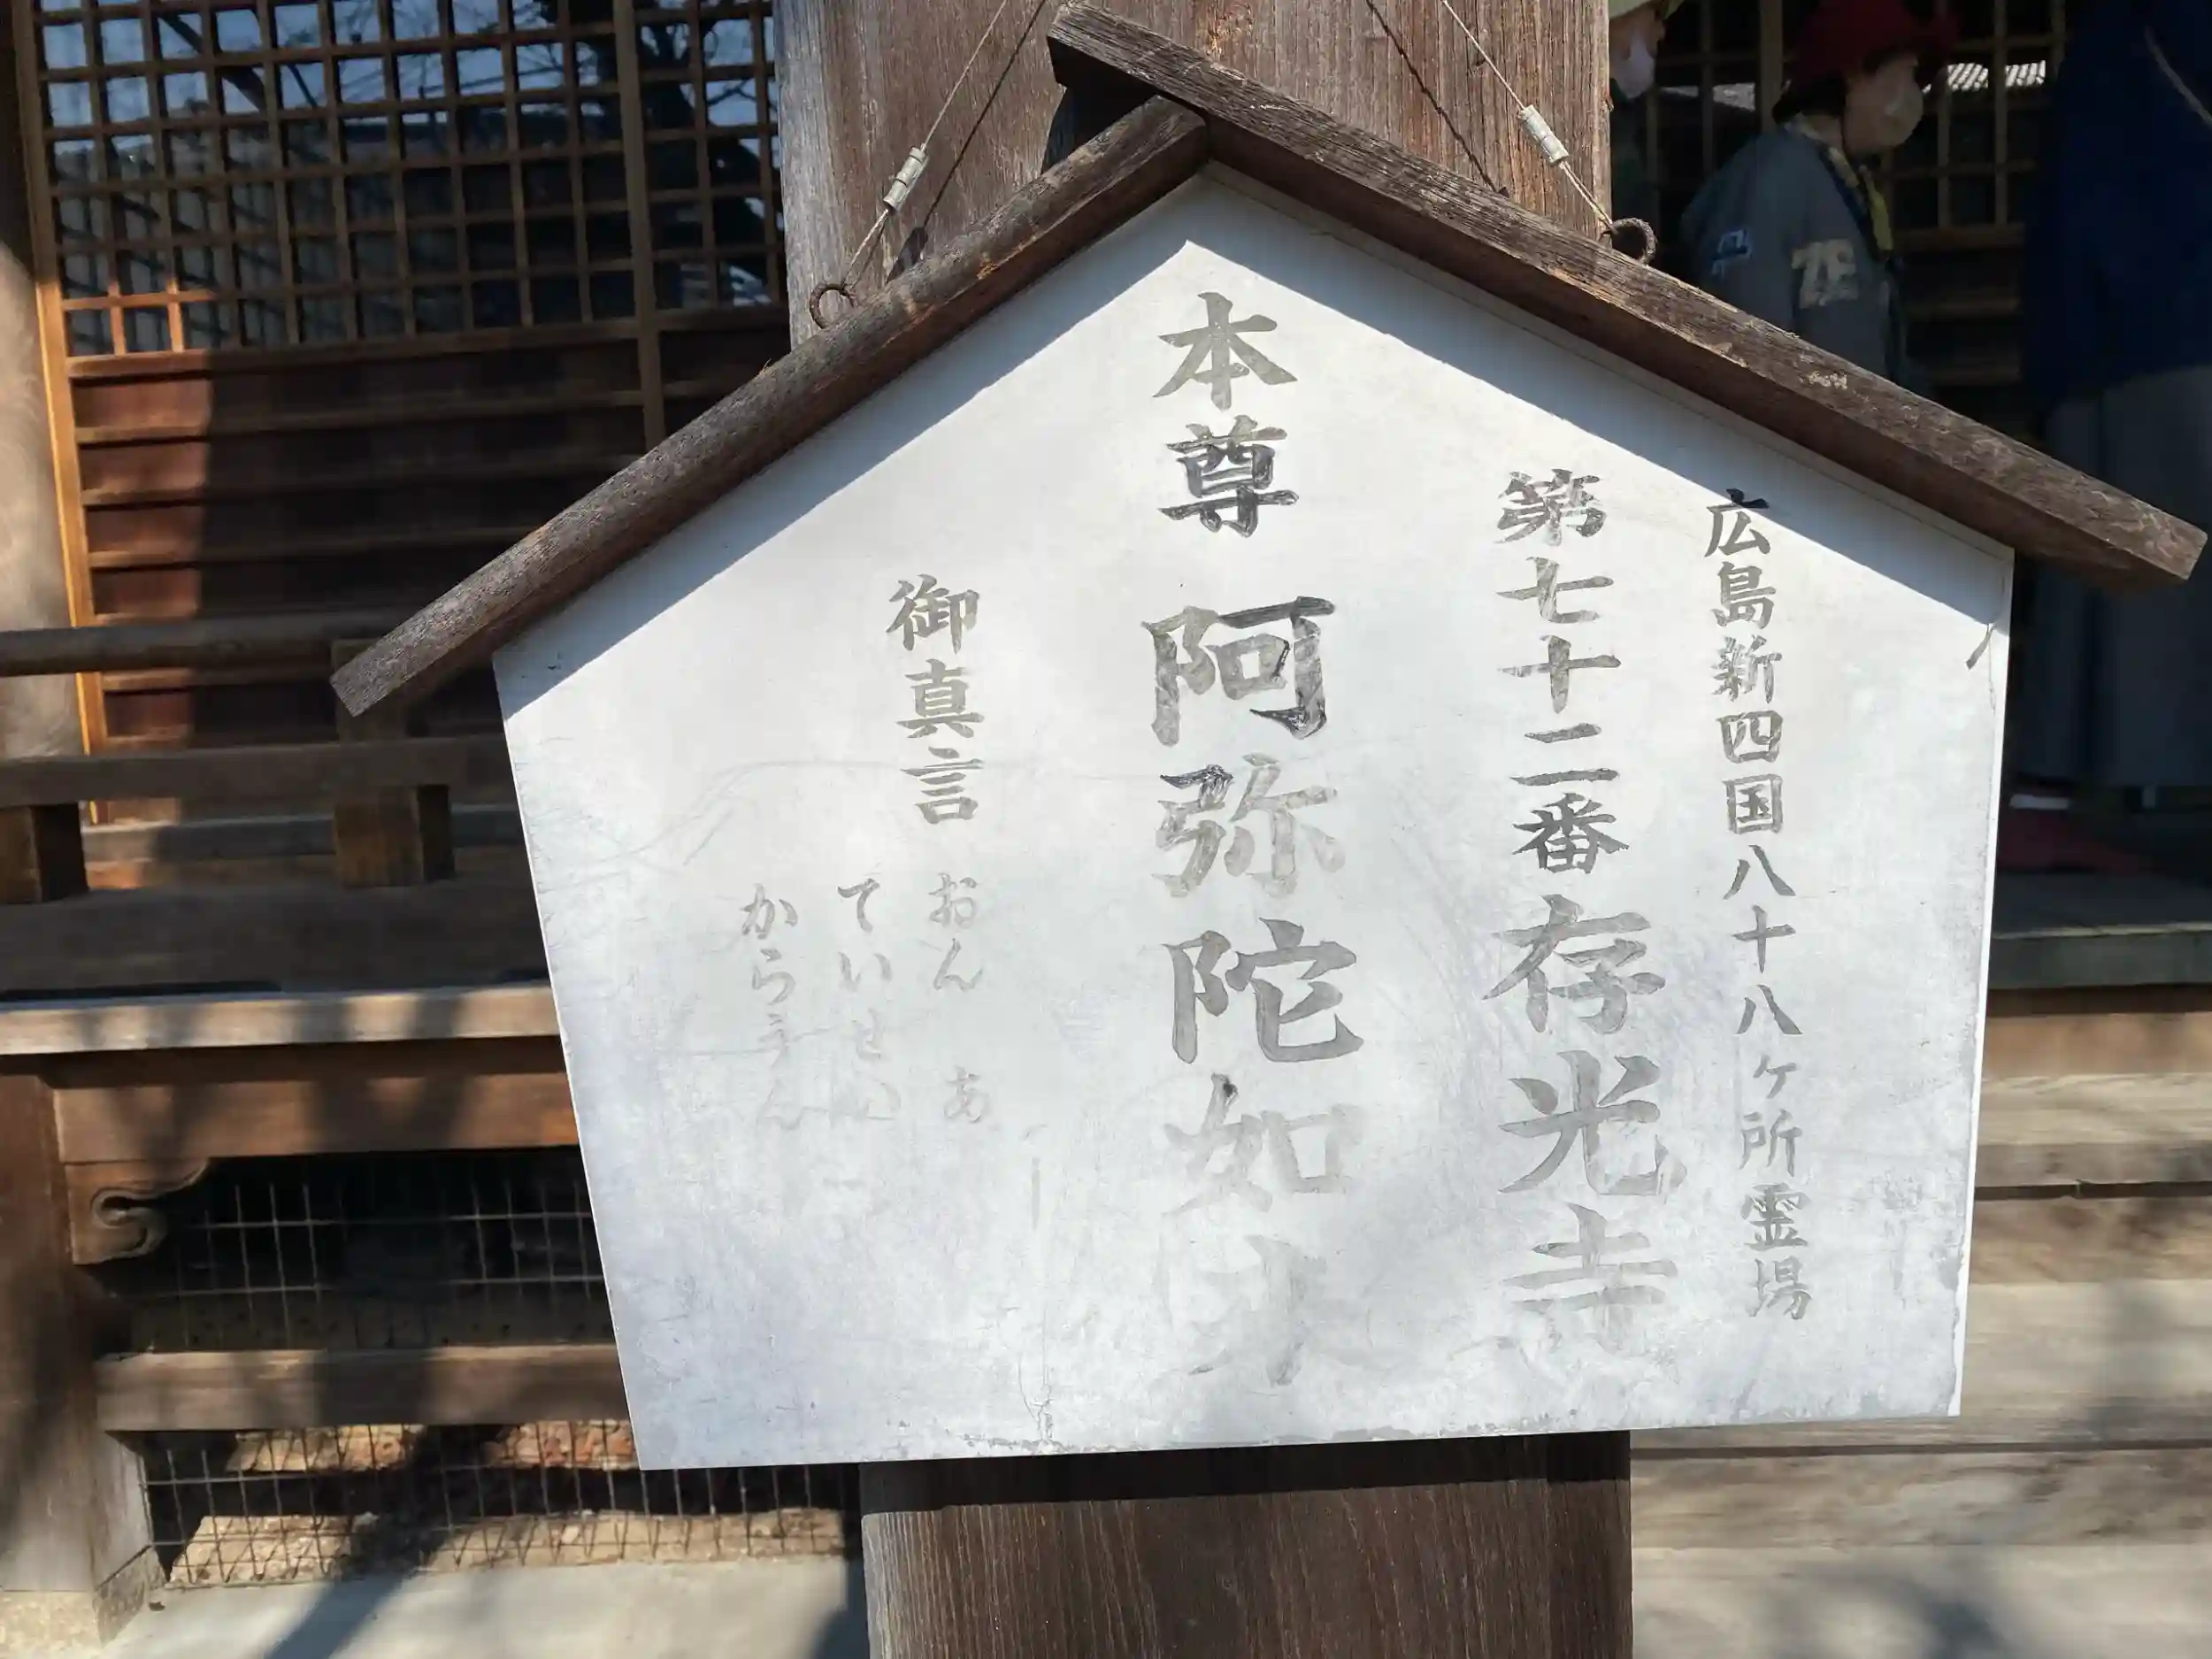 広島新四国八十八ヶ所霊場
第七十二番 存光寺
本尊 阿弥陀如来
御真言
おん あ
てい
からうん